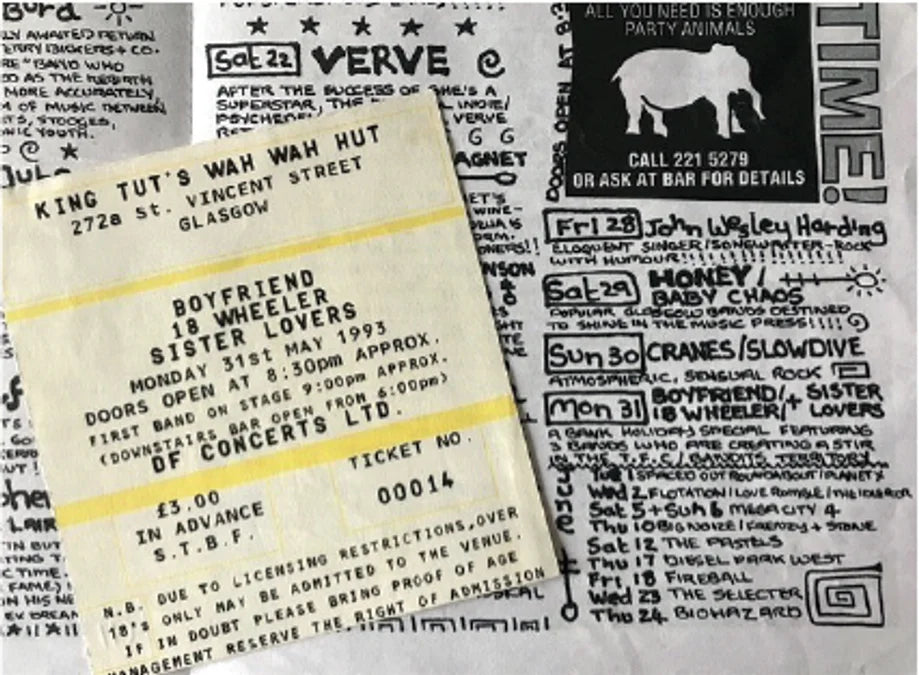 Bord
LY AWAITED RETURN
TERRY BICKERS + CO.
RE "BAND WHO
D AS THE REBIRTH
MORE ACCURATELY,
M OF MUSIC BETWEEN
TS, STOOGES,
NIC YOUTH.
Sat 22 VERVE
AFTER THE SUCCESS OF SHE'S A
SUPERSTAR, THE INDIE/
VERVE
AGNET
KING TUT'S WAH WAH HUT
272a St. VINCENT STREET
GLASGOW
BOYFRIEND
18 WHEELER
SISTER LOVERS
MONDAY 31st MAY 1993
DOORS OPEN AT 8:30pm APPROX.
FIRST BAND ON STAGE 9:00pm APPROX.
(DOWNSTAIRS BAR OPEN FROM 6:00pm)
DF CONCERTS LTD.
£3.00
IN ADVANCE
S.T.B.F.
TICKET NO.
00014
N.B. DUE TO LICENSING RESTRICTIONS,OVER
18's ONLY MAY BE ADMITTED TO THE VENUE.
IF IN DOUBT PLEASE BRING PROOF OF AGE
MANAGEMENT RESERVE THE RIGHT OF ADMISSION
ALL YOU NEED IS ENOUGH
PARTY ANIMALS
CALL 221 5279
OR ASK AT BAR FOR DETAILS
DOORS OPEN AT 8:
TIME!
Fri 28 John Wesley Harding
ELOQUENT SINGER/SONGWRITER-ROCK
WITH HUMOUR!!!!!!!!!!!!!
Sat 29 HONEY/
BABY CHAOS
POPULAR GLASGOW BANDS DESTINED
TO SHINE IN THE MUSIC PRESS!!!!
Sun 30 CRANES/SLOWDIVE
ATMOSPHERIC, SENSUAL ROCK
Mon 31 BOYFRIEND/+ SISTER
18 WHEELER/ LOVERS
A BANK HOLIDAY SPECIAL FEATURING
3 BANDS WHO ARE CREATING A STIR
IN THE T.F.C/BANDITS TERRITORY
Tue 1 SPACED OUT ROUNDABOUT/PLANET X
Wed 2 FLOTATION/LOVE RUMBLE/
Sat 5 + Sun 6 MEGA CITY 4
Thu 10 BIG NOIZE/FRENZY + STONE
Sat 12 THE PASTELS
Thu 17 DIESEL PARK WEST
Fri 18 FIREBALL
Wed 23 THE SELECTER
Thu 24 BIOHAZARD